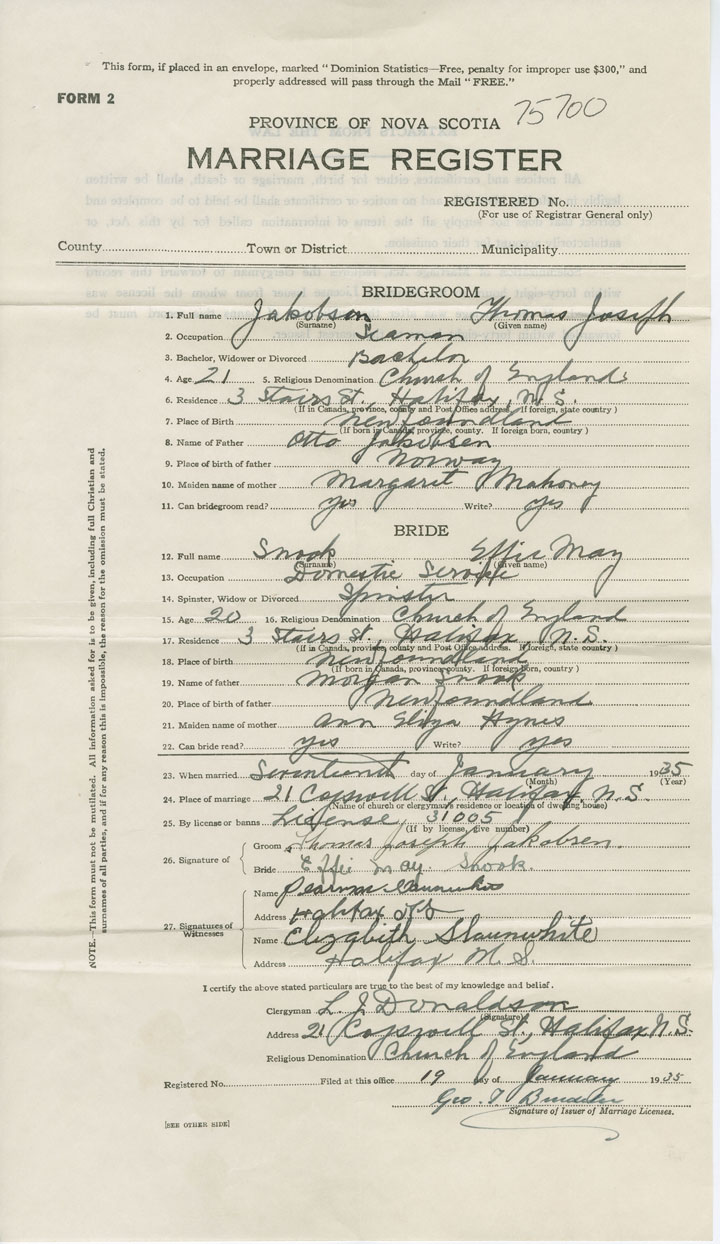 This form, if placed in an envelope, marked "Dominion Statistics—Free, penalty for improper use $300," and
properly addressed will pass through the Mail "FREE."
FORM 2
75700
PROVINCE OF NOVA SCOTIA
MARRIAGE REGISTER
REGISTERED No.
(For use of Registrar General only)
County Town or District Municipality
BRIDEGROOM
1. Full name Jakobsen Thomas Joseph
(Surname) (Given name)
2. Occupation Seaman
3. Bachelor, Widower or Divorced Bachelor
4. Age 21 5. Religious Denomination Church of England
6. Residence 3 Stairs St., Halifax, N.S.
(If in Canada, province, county and Post Office address. If foreign, state country)
7. Place of Birth Newfoundland
(If born in Canada, province, county. If foreign born, country)
8. Name of Father Otto Jakobsen
9. Place of birth of father Norway
10. Maiden name of mother Margaret Mahoney
11. Can bridegroom read? yes Write? yes
BRIDE
12. Full name Snook Effie May
(Surname) (Given name)
13. Occupation Domestic Service
14. Spinster, Widow or Divorced Spinster
15. Age 20 16. Religious Denomination Church of England
17. Residence 3 Stairs St., Halifax, N.S.
(If in Canada, province, county and Post Office address. If foreign, state country)
18. Place of birth Newfoundland
(If born in Canada, province, county. If foreign born, country)
19. Name of father Morgan Snook
20. Place of birth of father Newfoundland
21. Maiden name of mother Ann Eliza Hynes
22. Can bride read? yes Write? yes
23. When married Seventeenth day of January 1935
(Month) (Year)
24. Place of marriage 21 Cogswell St., Halifax, N.S.
(Name of church or clergyman's residence or location of dwelling house)
25. By license or banns License, 31005
(If by license, give number)
26. Signature of Groom Thomas Joseph Jakobsen
Bride Effie may Snook
27. Signatures of Witnesses
Name Slaunwhite
Address Halifax
Name Elizabith Slaunwhite
Address Halifax N.S.
I certify the above stated particulars are true to the best of my knowledge and belief.
Clergyman L. J. Donaldson
(Signature)
Address 21 Cogswell St., Halifax N.S.
Religious Denomination Church of England
Registered No. Filed at this office 19 day of January 1935
Geo. T.
Signature of Issuer of Marriage Licenses.
[SEE OTHER SIDE]
NOTE.—This form must not be mutilated. All information asked for is to be given, including full Christian and
surnames of all parties, and if for any reason this is impossible, the reason for the omission must be stated.